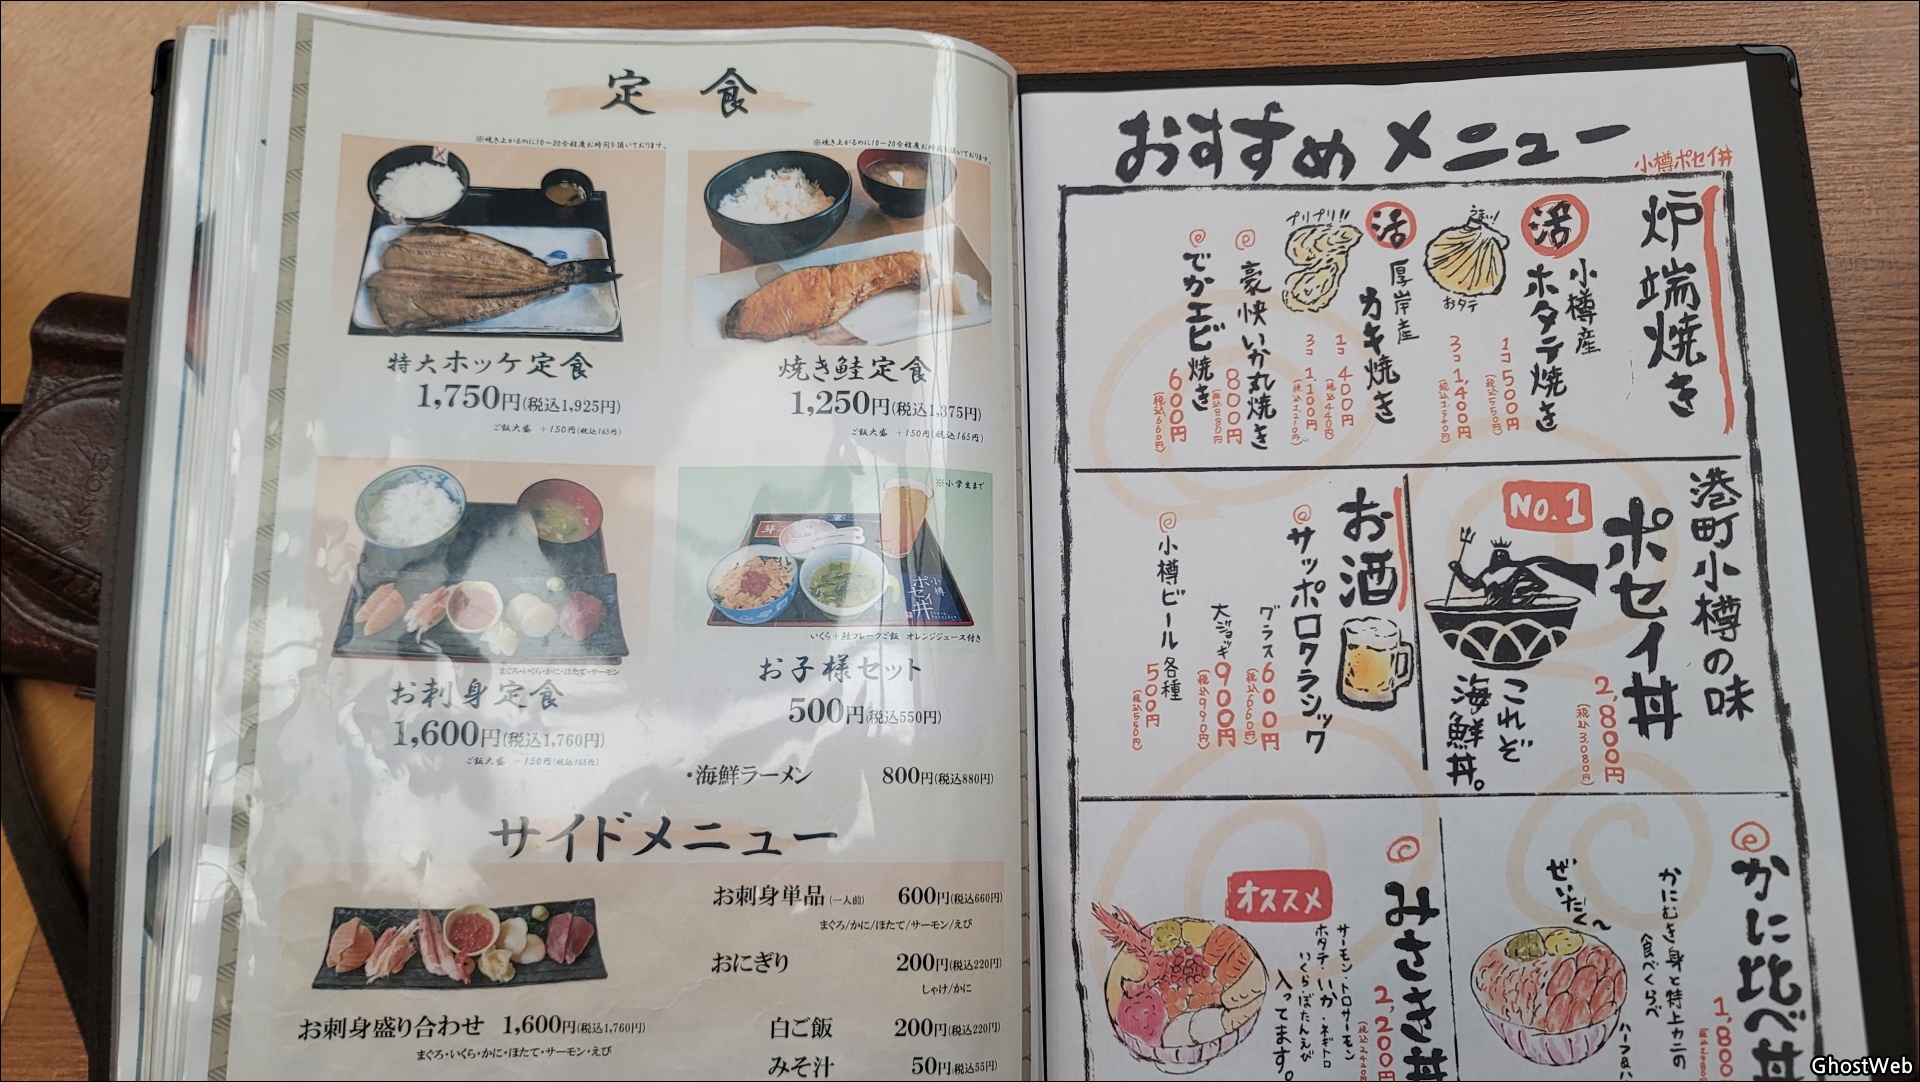 定食
※焼き上がるのに10～20分程度お時間を頂いております。
特大ホッケ定食
1,750円(税込1,925円)
ご飯大盛 +150円(税込165円)
※焼き上がるのに10～20分程度お時間を頂いております。
焼き鮭定食
1,250円(税込1,375円)
ご飯大盛 +150円(税込165円)
まぐろ・いくら・かに・ほたて・サーモン
お刺身定食
1,600円(税込1,760円)
ご飯大盛 +150円(税込165円)
※小学生まで
小樽
ポセイ丼
いくら+鮭フレークご飯 オレンジジュース付き
お子様セット
500円(税込550円)
・海鮮ラーメン 800円(税込880円)
サイドメニュー
お刺身盛り合わせ 1,600円(税込1,760円)
まぐろ・いくら・かに・ほたて・サーモン・えび
お刺身単品(一人前) 600円(税込660円)
まぐろ/かに/ほたて/サーモン/えび
おにぎり 200円(税込220円)
しゃけ/かに
白ご飯 200円(税込220円)
みそ汁 50円(税込55円)
おすすめメニュー
小樽ポセイ丼
炉端焼き
活 小樽産
ホタテ焼き
1コ 500円
(税込550円)
3コ 1,400円
(税込1,540円)
おタテ
活 厚岸産
カキ焼き
1コ 400円
(税込440円)
3コ 1,100円
(税込1,210円)
プリプリ!!
豪快いか丸焼き
800円
(税込880円)
でかエビ焼き
600円
(税込660円)
港町小樽の味
ポセイ丼
2,800円
(税込3,080円)
No.1
これぞ
海鮮丼。
お酒
サッポロクラシック
グラス 600円
(税込660円)
大ジョッキ 900円
(税込990円)
小樽ビール各種
500円
(税込550円)
かに比べ丼
1,800
かにむき身と特上カニの
食べくらべ
ハーフ&ハ
ぜいたく～
みさき丼
2,200円
オススメ
サーモン・トロサーモン
ホタテ・いか・ネギトロ
いくら・ぼたんえび
入ってます。
SONY
GhostWeb